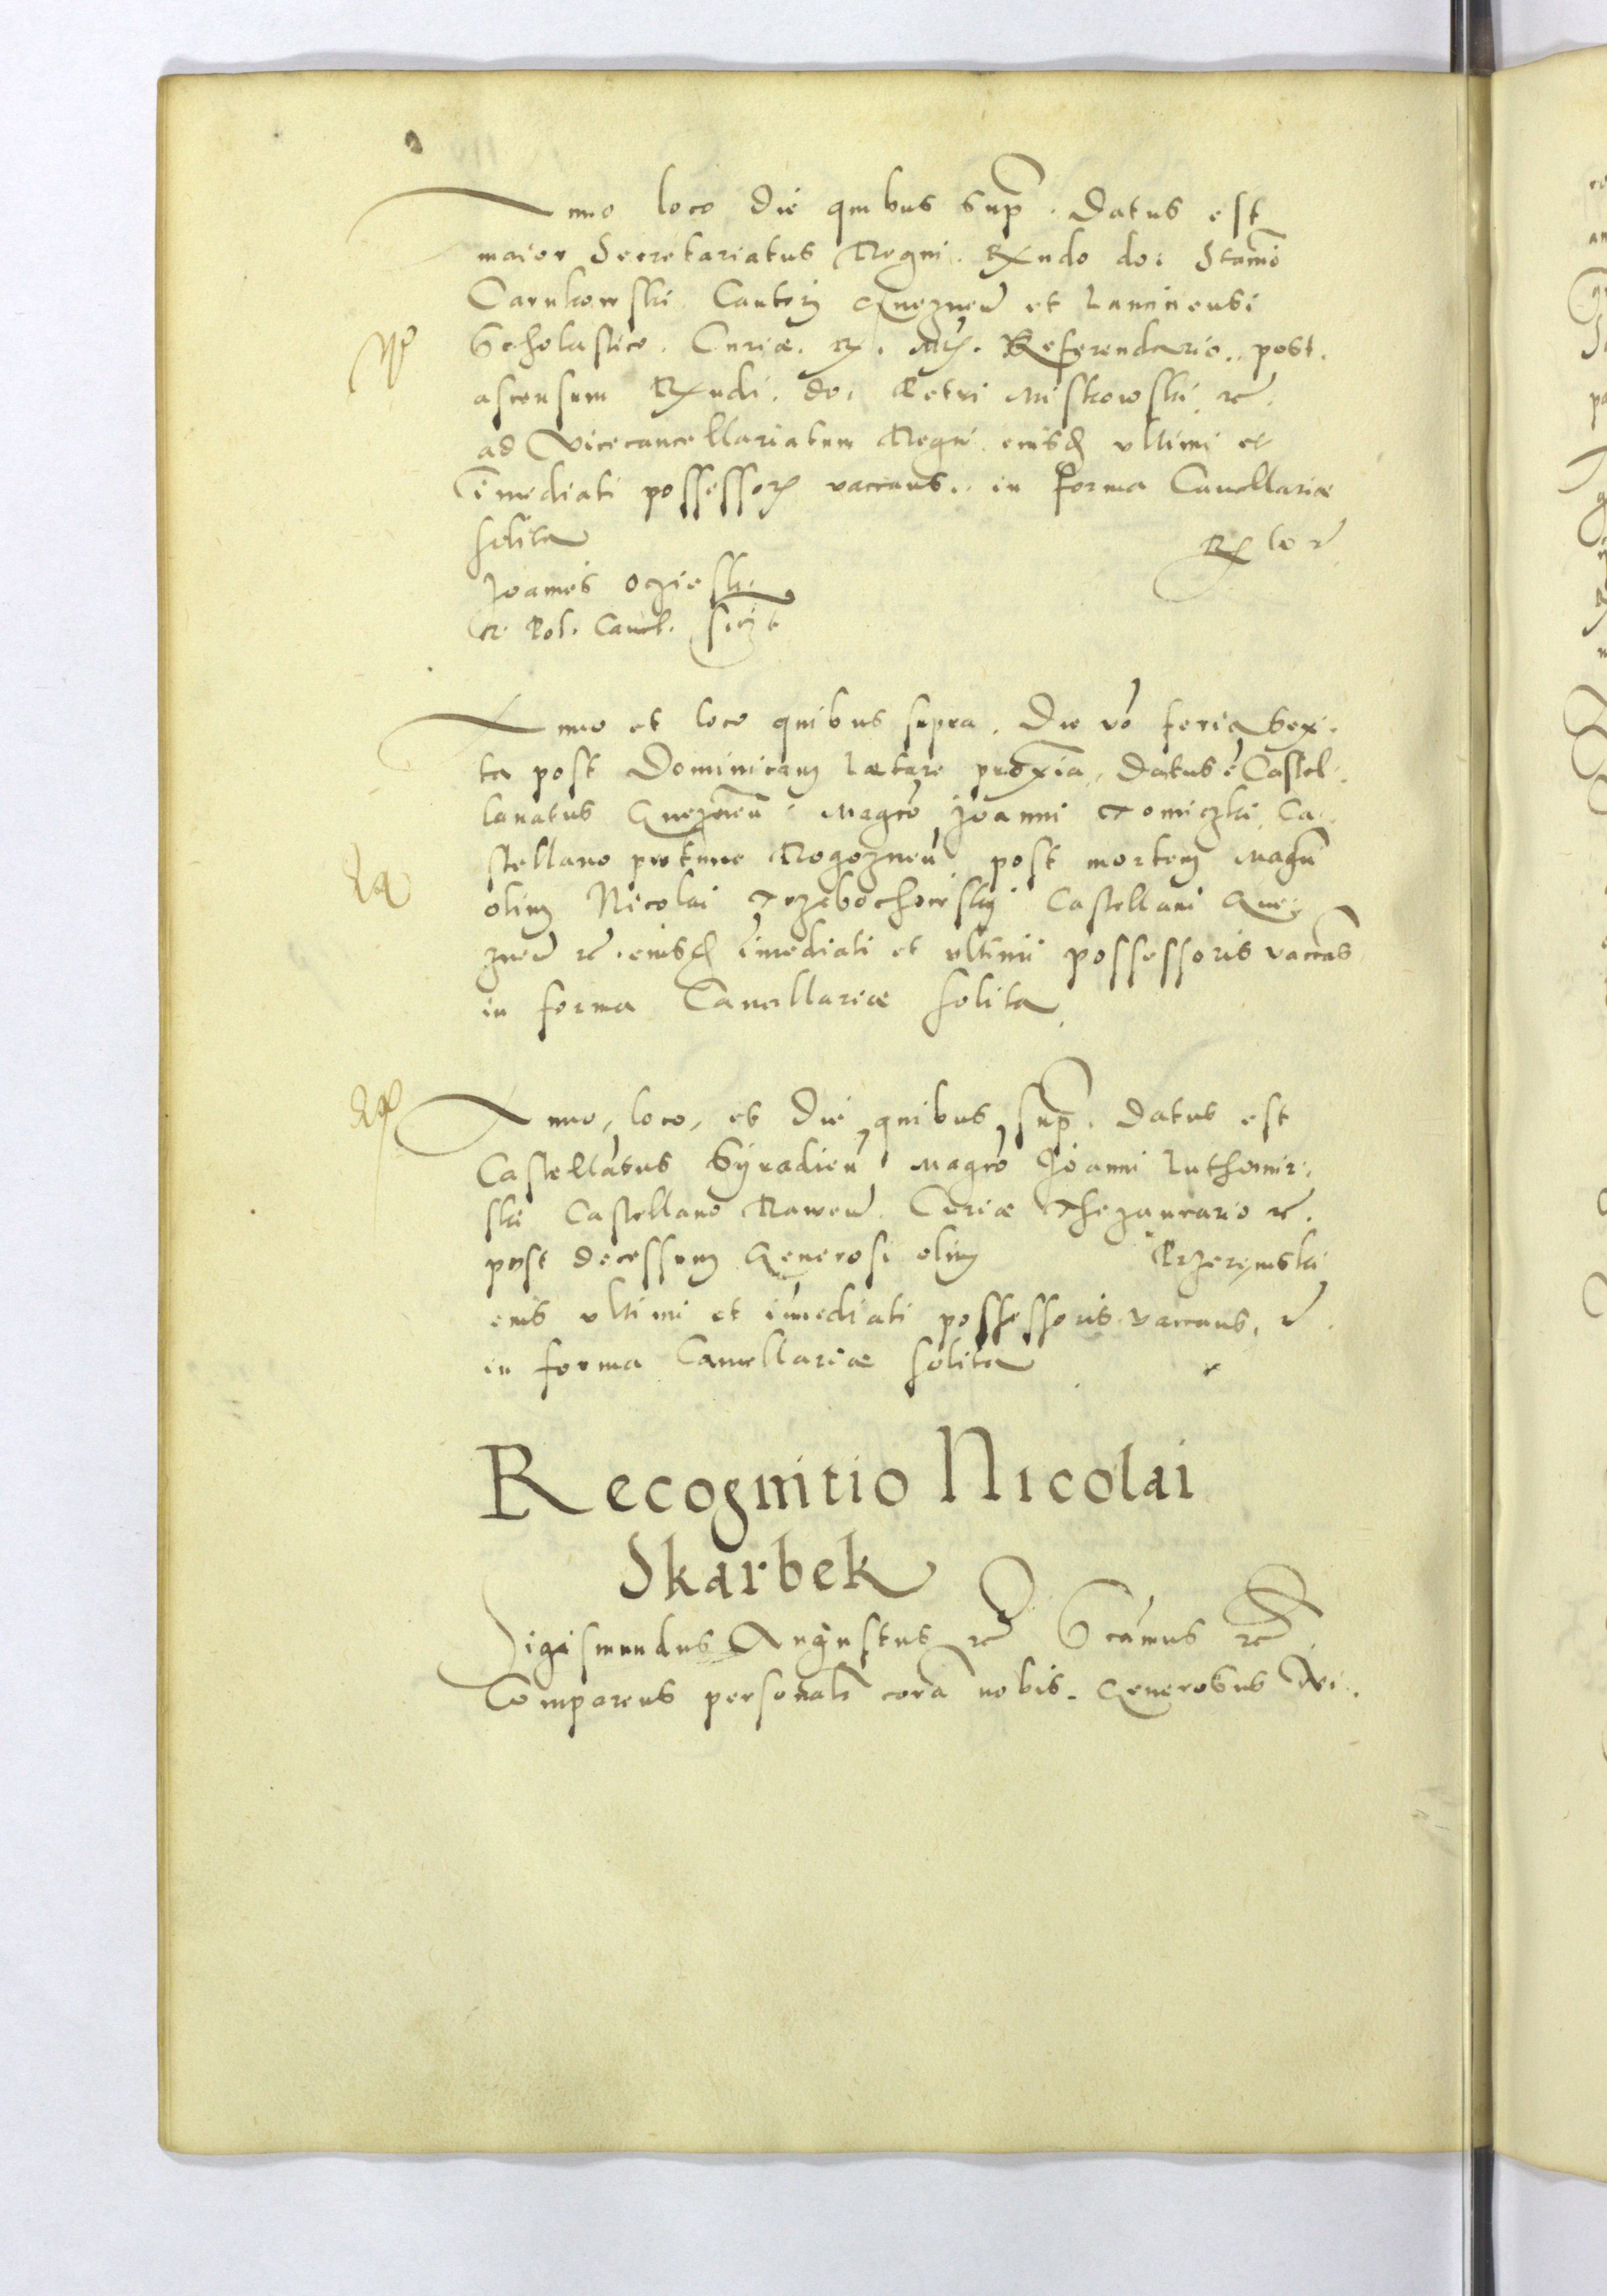 Anno loco die quibus sup. Datus est
maior Secretariatus Regni. Rxndo do: Stanio
Carnkowski Cantori Gneznen et Lancicensi
Scholastico. Curiæ. R. Mtis. Referendario. post.
ascensum Rxndi. do: Petri Miskowski, etc
ad Vicecancellariatum Regni eiusd ultimi et
imediati possessoris vaccans. in forma Cancellariæ
solita
Joannes Oczieski
R. Pol. Cancel.
Anno et loco quibus supra. Die vo feria Sex.
ta post Dominicam Lætare proxia, datus e Castel.
lanatus Gneznen. Magco Joanni Tomiczki Ca.
stellano protunc Rogoznen post mortem Magci
olim Nicolai Trzebochowskij Castellani Gne.
znen etc. eiusd imediati et ultimi possessoris vaccans
in forma Cancellariæ solita
Anno, loco, et die quibus sup. Datus est
Castellatus Syradien Magco Joanni Luthomir.
ski Castellano Rawen. Curiæ Thezaurario etc.
post decessum Generosi olim Przerembski
eius ultimi et imediati possessoris vaccans, etc
in forma Cancellariæ solita
Recognitio Nicolai
Skarbek
Sigismundus Augustus etc Scamus etc
Comparens personali cora nobis. Generosus Ni.